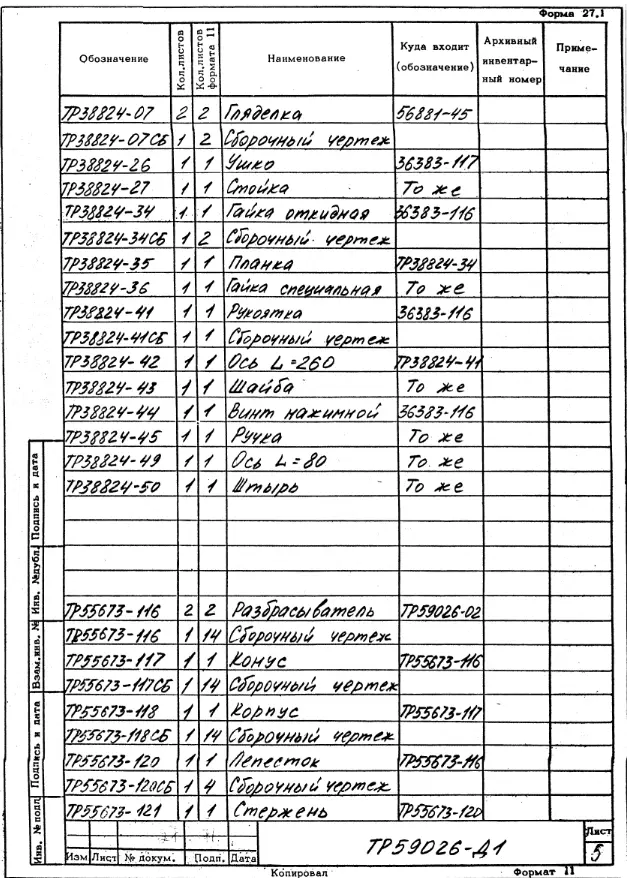 Форма 27.1
Обозначение Кол.листов Кол.листов формата 11 Наименование Куда входит (обозначение) Архивный инвентар- ный номер Приме- чание
ТР38824-07 2 2 Гляделка 56881-45
ТР38824-07СБ 1 2 Сборочный чертеж
ТР38824-26 1 1 Ушко 36383-117
ТР38824-27 1 1 Стойка То же
ТР38824-34 1 1 Гайка откидная 36383-116
ТР38824-34СБ 1 2 Сборочный чертеж
ТР38824-35 1 1 Планка ТР38824-34
ТР38824-36 1 1 Гайка специальная То же
ТР38824-41 1 1 Рукоятка 36383-116
ТР38824-41СБ 1 1 Сборочный чертеж
ТР38824-42 1 1 Ось L=260 ТР38824-41
ТР38824-43 1 1 Шайба То же
ТР38824-44 1 1 Винт нажимной 36383-116
ТР38824-45 1 1 Ручка То же
ТР38824-49 1 1 Ось L=80 То же
ТР38824-50 1 1 Штырь То же
ТР55673-116 2 2 Разбрасыватель ТР59026-02
ТР55673-116 1 14 Сборочный чертеж
ТР55673-117 1 1 Конус ТР55673-116
ТР55673-117СБ 1 14 Сборочный чертеж
ТР55673-118 1 1 Корпус ТР55673-117
ТР55673-118СБ 1 14 Сборочный чертеж
ТР55673-120 1 1 Лепесток ТР55673-116
ТР55673-120СБ 1 4 Сборочный чертеж
ТР55673-121 1 1 Стержень ТР55673-120
Инв. № подл. Подпись и дата Взам.инв. № Инв. №дубл. Подпись и дата
Изм Лист № докум. Подп. Дата
ТР59026-Д1
Лист
5
Копировал Формат 11